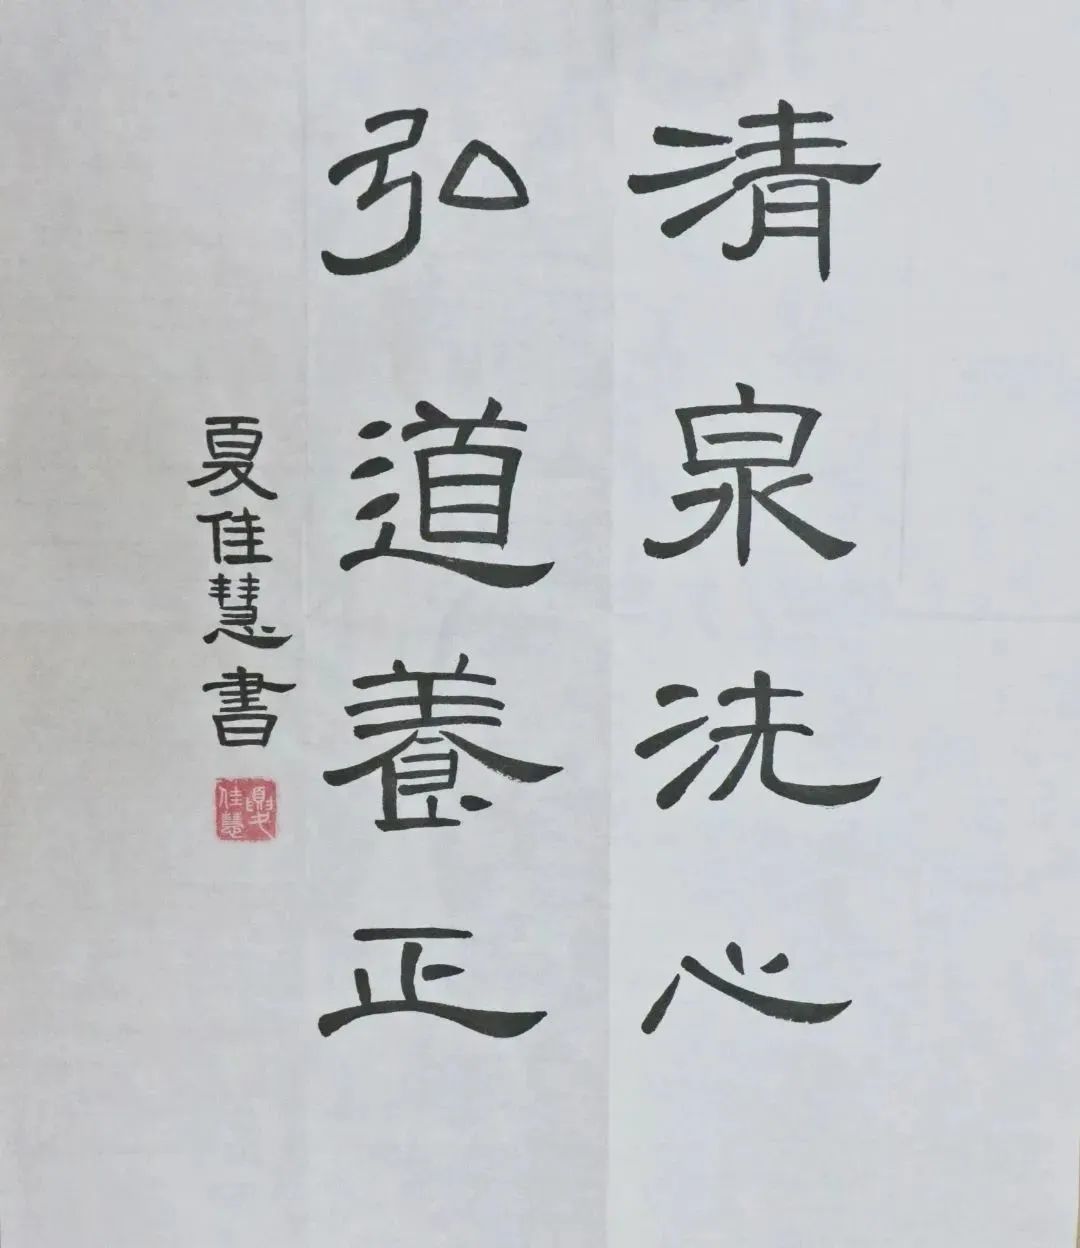 清泉洗心
弘道養正
夏佳慧書
夏佳慧